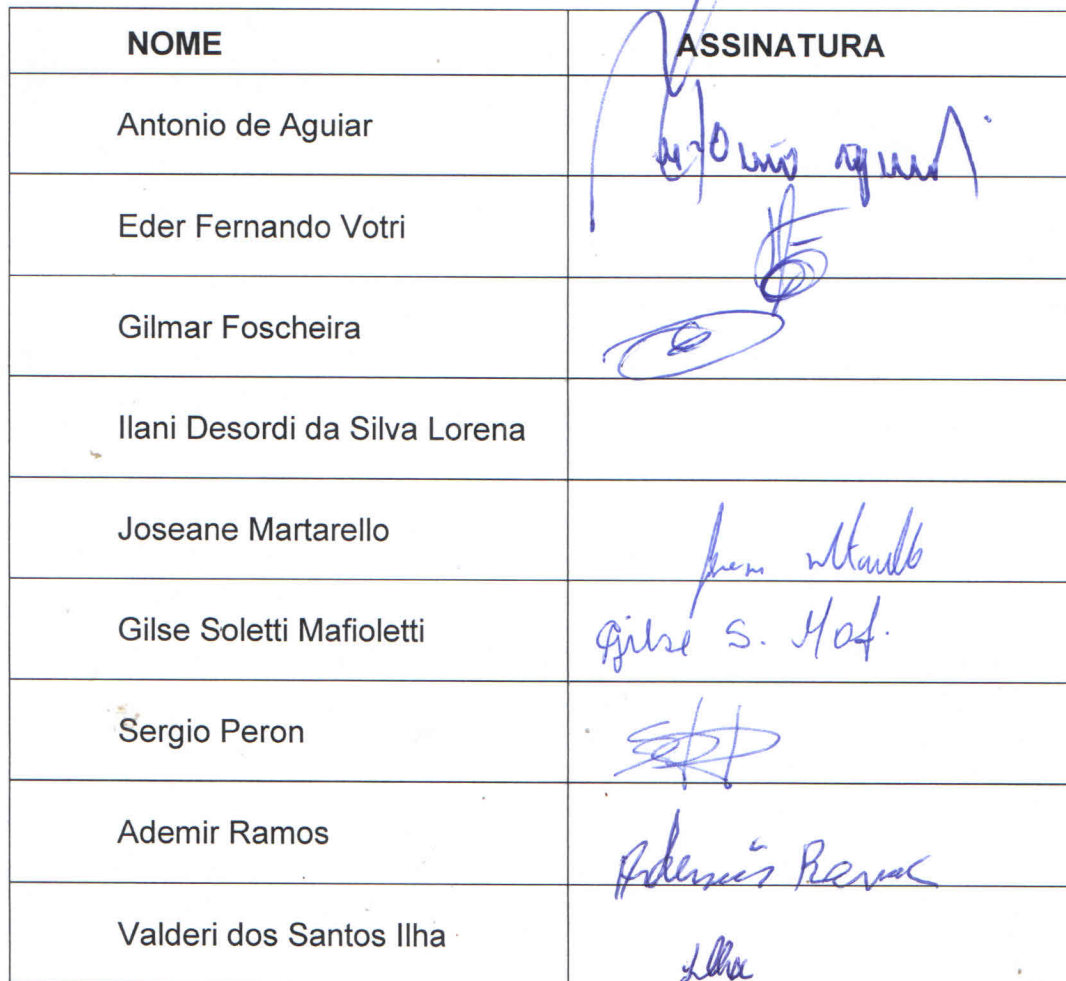 NOME ASSINATURA
Antonio de Aguiar
Eder Fernando Votri
Gilmar Foscheira
Ilani Desordi da Silva Lorena
Joseane Martarello
Gilse Soletti Mafioletti Gilse S. Maf.
Sergio Peron
Ademir Ramos Ademir Ramos
Valderi dos Santos Ilha Ilha